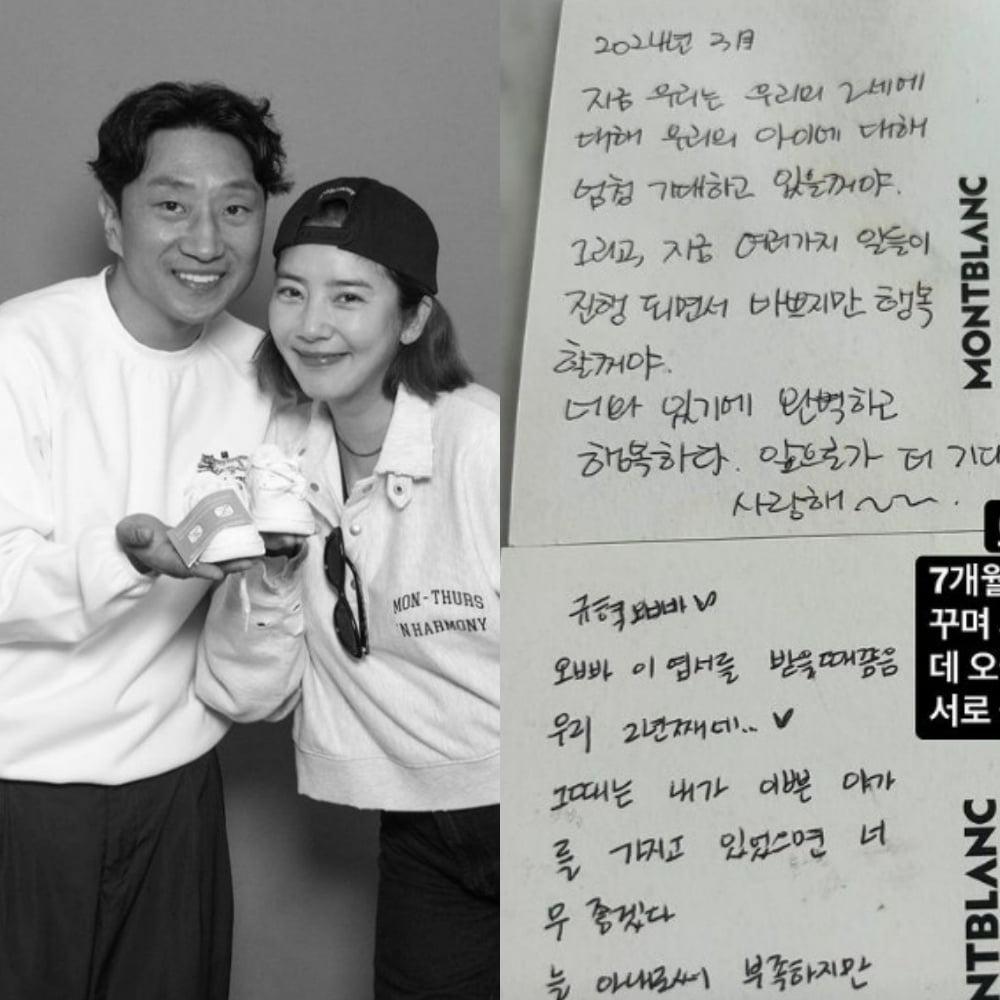 MON-THURS
IN HARMONY
2024년 3月
지금 우리는 우리의 2세에
대해 우리의 아이에 대해
엄청 기대하고 있을꺼야.
그리고, 지금 여러가지 일들이
진행 되면서 바쁘지만 행복
할꺼야.
너와 있기에 완벽하고
행복하다. 앞으로가 더 기대
사랑해 ~~.
MONTBLANC
규혁오빠 ♡
오빠 이 엽서를 받을때쯤음
우리 2년째네.. ♥
그때는 내가 이쁜 아가
를 가지고 있었으면 너
무 좋겠다
늘 아내로써 부족하지만
7개월
꾸며
데 오
서로
NTBLANC